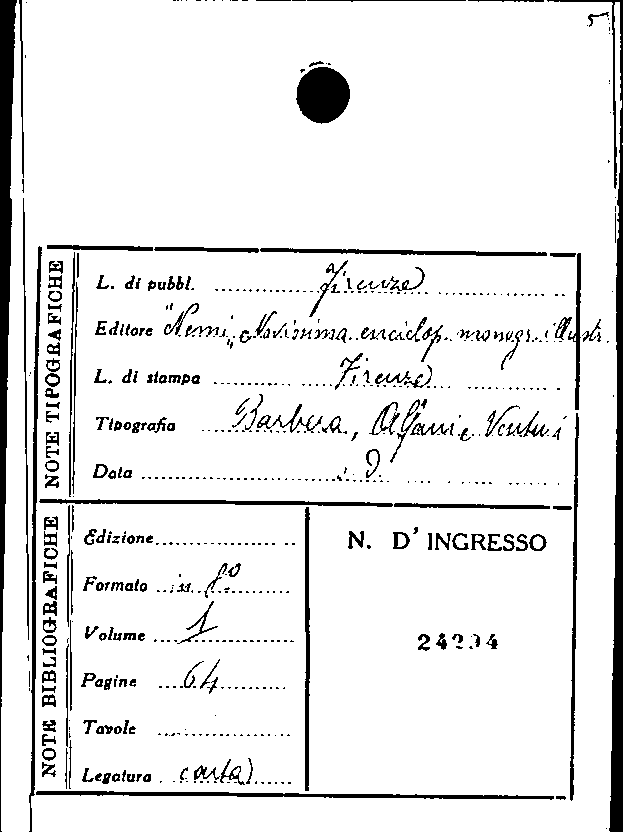 5
NOTE TIPOGRAFICHE
L. di pubbl. Firenze
Editore "Nemi" Novissima enciclop. monogr. illustr.
L. di stampa Firenze
Tipografia Barbera, Alfani e Venturi
Data
NOTE BIBLIOGRAFICHE
Edizione
Formato in 8°
Volume 1
Pagine 64
Tavole
Legatura carta
N. D' INGRESSO